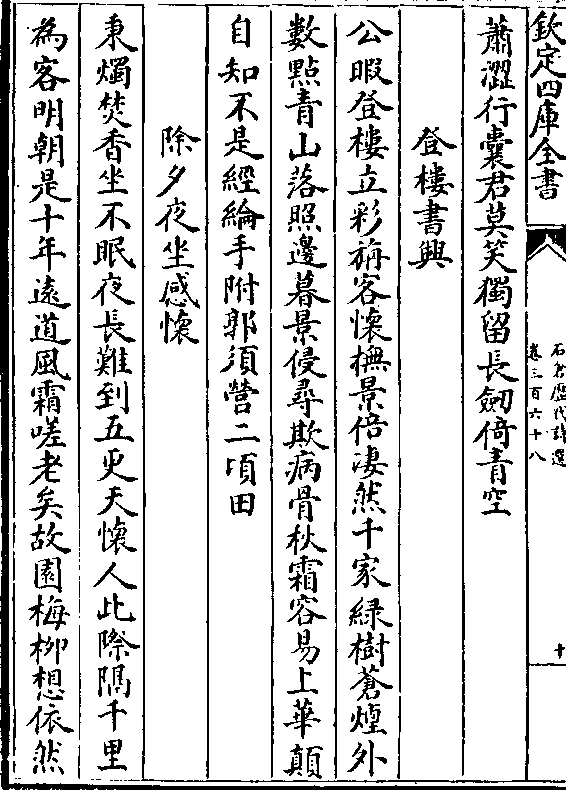 欽定四庫全書
石倉歷代詩選
卷三百六十八
十
蕭澀行囊君莫笑獨留長劒倚青空
登樓書興
公暇登樓立彩旃客懷撫景倍凄然千家緑樹蒼煙外
數點青山落照邊暮景侵尋欺病骨秋霜容易上華顛
自知不是經綸手附郭須營二頃田
除夕夜坐感懷
秉燭焚香坐不眠夜長難到五更天懷人此際隔千里
為客明朝是十年遠道風霜嗟老矣故園梅柳想依然